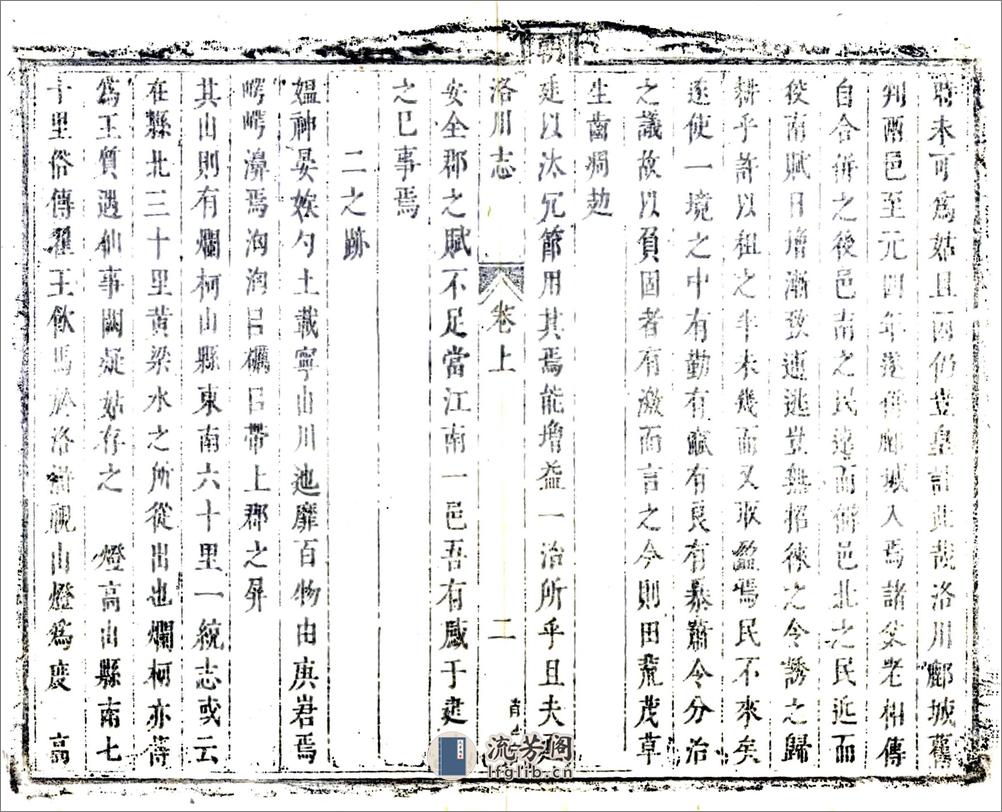 未可爲姑且因仍豈皇計此哉洛川鄜城舊
判兩邑至元四年遂併鄜城入焉諸父老相傳
自合併之後邑南之民遠而僻邑北之民近而
役南賦日增漸致逋逃豈無招徠之令誘之歸
耕乎許以租之半未幾而又取盈焉民不來矣
遂使一境之中有勤有賦有良有暴蕭今分治
之議故以負固者有激而言之今則田蕪茂草
生齒凋
廷以汰冗節用其焉能增益一治所乎且夫
洛川志 卷上 二
安全郡之賦不足當江南一邑吾有感于
之巳事焉
二之跡
媪神晏娭勺土載寧山川迆靡百物由庚君焉
崿崿瀑焉洶洶吕礪吕帶上郡之屏
其山則有爛柯山縣東南六十里一統志或云
在縣北三十里黃梁水之所從出也爛柯亦傳
爲王質遇仙事闕疑姑存之 燈高山縣南七
十里俗傳翟王飲馬於洛滸觀山燈爲度 高
流芳閣
lfglib.cn